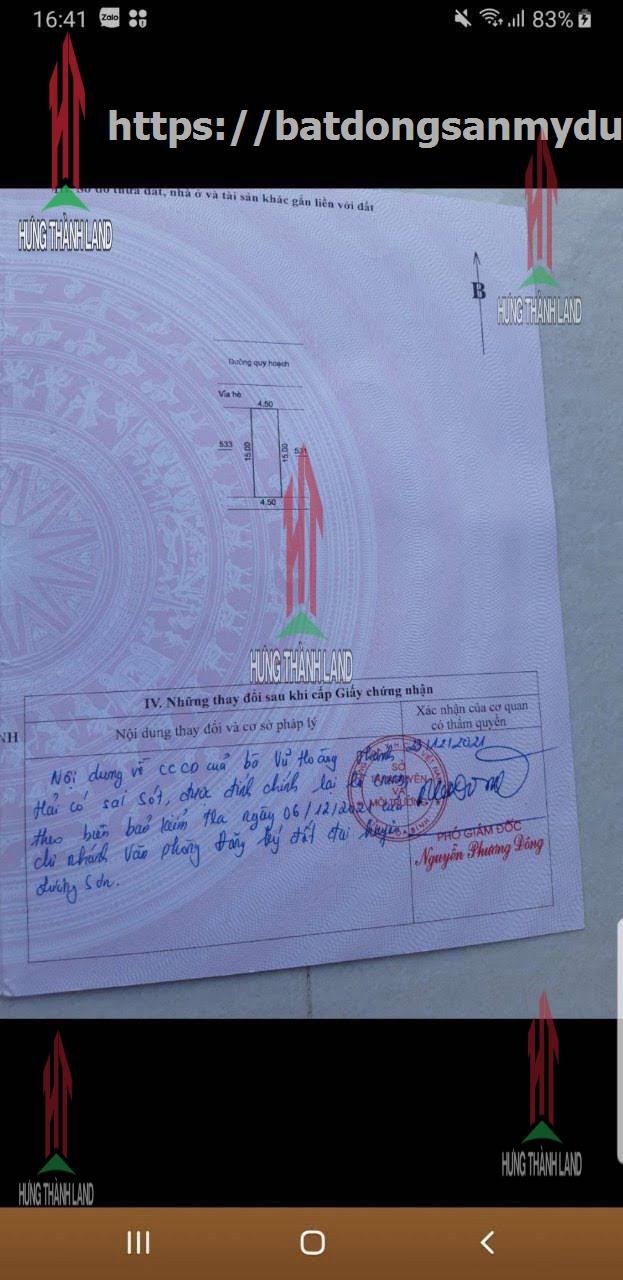 16:41
Zalo
83%
https://batdongsanmydu
III. Sơ đồ thửa đất, nhà ở và tài sản khác gắn liền với đất
HƯNG THÀNH LAND
B
HƯNG THÀNH LAND
Đường quy hoạch
Vỉa hè
4.50
533
15.00
15.00
531
4.50
HƯNG THÀNH LAND
IV. Những thay đổi sau khi cấp Giấy chứng nhận
NH
Nội dung thay đổi và cơ sở pháp lý
Xác nhận của cơ quan
có thẩm quyền
Nội dung về CCCD của bà Vũ Hoàng Thanh
Hải có sai sót, được đính chính lại là
theo biên bản kiểm tra ngày 06/12/2021 của
chi nhánh Văn phòng Đăng ký đất đai huyện
Lương Sơn.
23/12/2021
SỞ
TÀI NGUYÊN
VÀ
MÔI TRƯỜNG
PHÓ GIÁM ĐỐC
Nguyễn Phương Đông
HƯNG THÀNH LAND
HƯNG THÀNH LAND